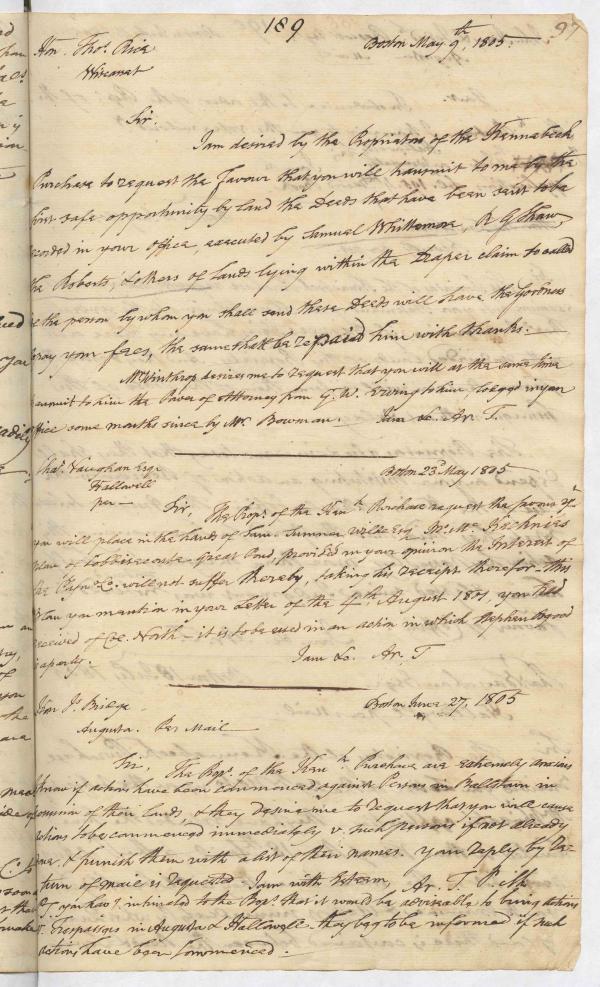 189
97
Hon. Thos. Rice
Boston May 9th, 1805.
Wiscasset
Sir.
I am desired by the Proprietors of the Kennebeck
Purchase to request the favour that you will transmit to me by the
first safe opportunity by land the Deeds that have been sent to be
recorded in your office executed by Samuel Whittemore, R G Shaw
the Roberts, & others of Lands lying within the Draper claim so called
the person by whom you shall send these Deeds will have the Goodness
pay your fees, the same shall be repaid him with thanks.—
Mr. Winthrop desires me to request that you will at the same time
transmit to him the Power of Attorney from G. W. Erving to him, lodged in your
office some months since by Mr. Bowman. I am &c. Ar. T.
Chas. Vaughan Esq
Boston 23d May 1805
Hallowell
per —
Sir, The Props. of the Kenk. Purchase request the favour yt.
you will place in the hands of Saml. Sumner Wilde Esq Jno. McKechnies
plan of Cobbiseconte Great Pond, provided in your opinion the Interest of
the Propn. Co. will not suffer thereby, taking his receipt therefor — this
Plan you mention in your Letter of the 4th August 1801 you had
received of Ce. North — it is to be used in an action in which Stephen Osgood
is a party. I am &c. Ar. T
Hon Js. Bridge
Boston June 27, 1805
Augusta. Per Mail
Sir, The Props. of the Kenk. Purchase are extremely anxious
to know if actions have been commenced against Persons in Ballstown in
possession of their lands, & they desire me to request that you will cause
actions to be commenced immediately v. such persons if not already
done, & furnish them with a list of their names. Your reply by Re-
turn of mail is requested I am with Esteem, Ar. T.
you havg. intimated to the Props. that it would be adviseable to bring actions
v. Trespassers in Augusta & Hallowell — they beg to be informed if such
actions have been commenced.—